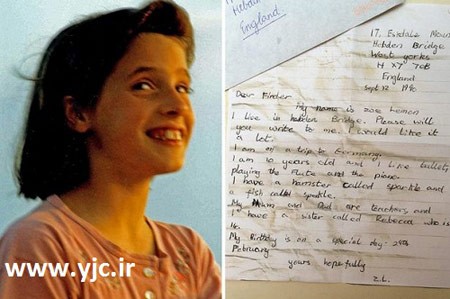 Hebden
England
17, Esedale Mount
Hebden Bridge
West yorks
H X7
England
Sept 12 1990
Dear Finder
My name is zoe Lemon
I live in hebden Bridge. Please will
you write to me, I would like it
a lot.
I am on a trip to Germany.
I am 10 years old and I like ballet,
playing the flute and the piano.
I have a hamster called sparkle and
a fish called speckle.
My Mum and Dad are teachers and
I have a sister called Rebecca who is
My Birthday is on a special day: 29th
February
yours hopefully
Z.L.
www.yjc.ir